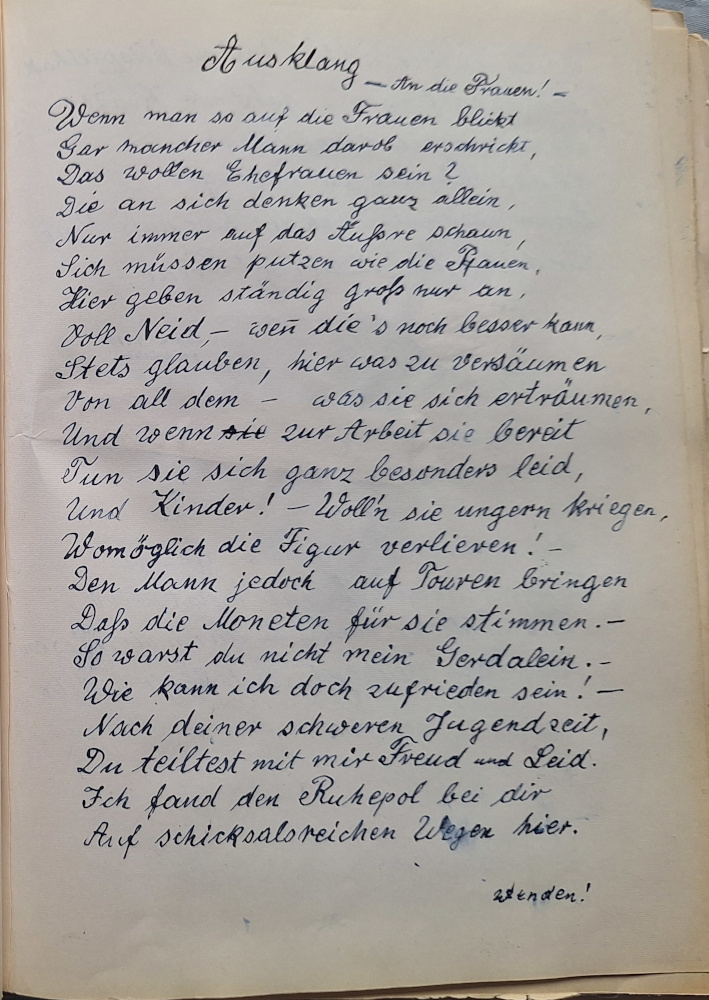 Ausklang
- An die Frauen! -
Wenn man so auf die Frauen blickt
Gar mancher Mann darob erschrickt,
Das wollen Ehefrauen sein?
Die an sich denken ganz allein,
Nur immer auf das Äußre schaun,
Sich müssen putzen wie die Pfauen,
Hier geben ständig groß nur an,
Voll Neid, - weñ die's noch besser kann,
Stets glauben, hier was zu versäumen
Von all dem - was sie sich erträumen,
Und wenn sie zur Arbeit sie bereit
Tun sie sich ganz besonders leid,
Und Kinder! - Woll'n sie ungern kriegen,
Womöglich die Figur verlieren! -
Den Mann jedoch auf Touren bringen
Daß die Moneten für sie stimmen. -
So warst du nicht mein Gerdalein. -
Wie kann ich doch zufrieden sein! -
Nach deiner schweren Jugendzeit,
Du teiltest mit mir Freud und Leid.
Ich fand den Ruhepol bei dir
Auf schicksalsreichen Wegen hier.
wenden!